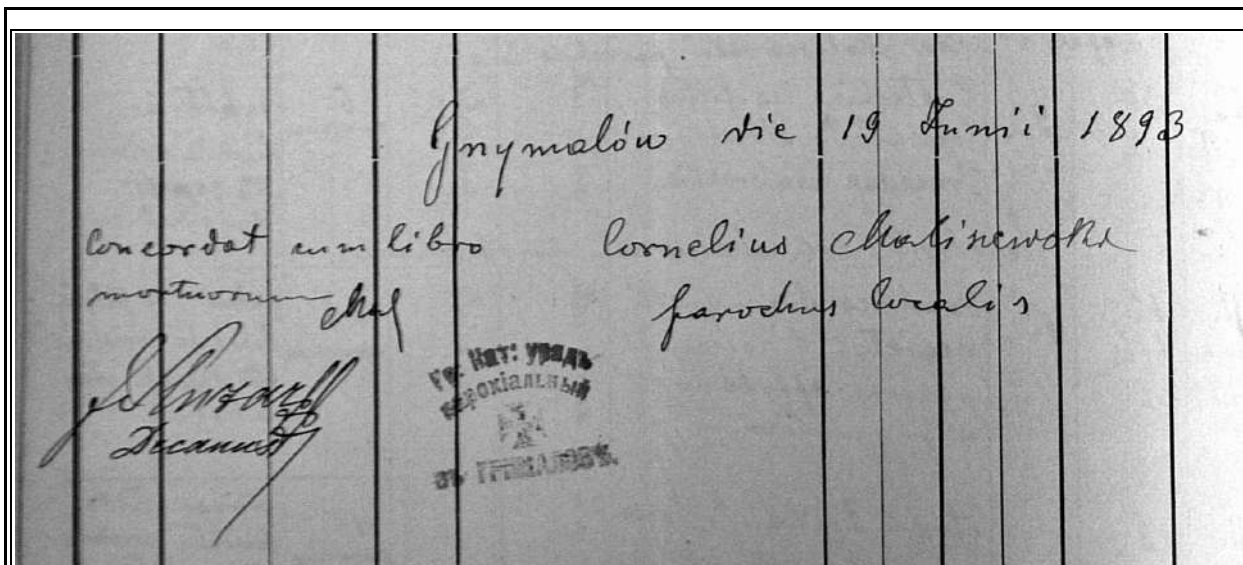 Grzymalów die 19 Junii 1893
Concordat cum libro
mortuorum
Cornelius Malisnewski
parochus localis
Decanus
Гр. Кат: урядъ
парохіальный
въ ГРИМАЛОВѢ.